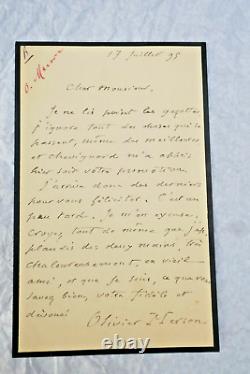 O. Merson
17 Juillet 95
Cher Monsieur,
Je ne lis point les gazettes
j'ignore tout des choses qui se
passent, même des meilleures
et Chevignard m'a appris
hier soir votre promotion.
J'arrive donc des derniers
pour vous féliciter. C'est un
peu tard. Je m'en excuse.
Croyez, tout de même que j'ap-
plaudis des deux mains, très
chaleureusement, en vieil
ami, et que je suis, ce que vous
savez bien, votre fidèle et
dévoué
Olivier Merson